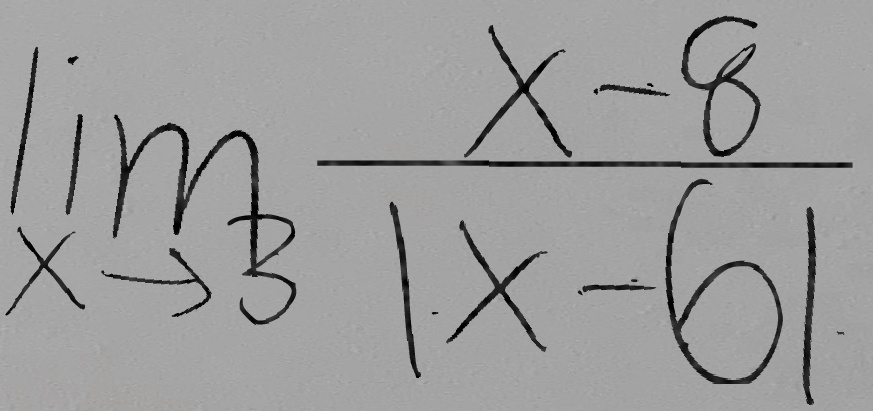 lim x→3 \frac{x-8}{|x-6|}